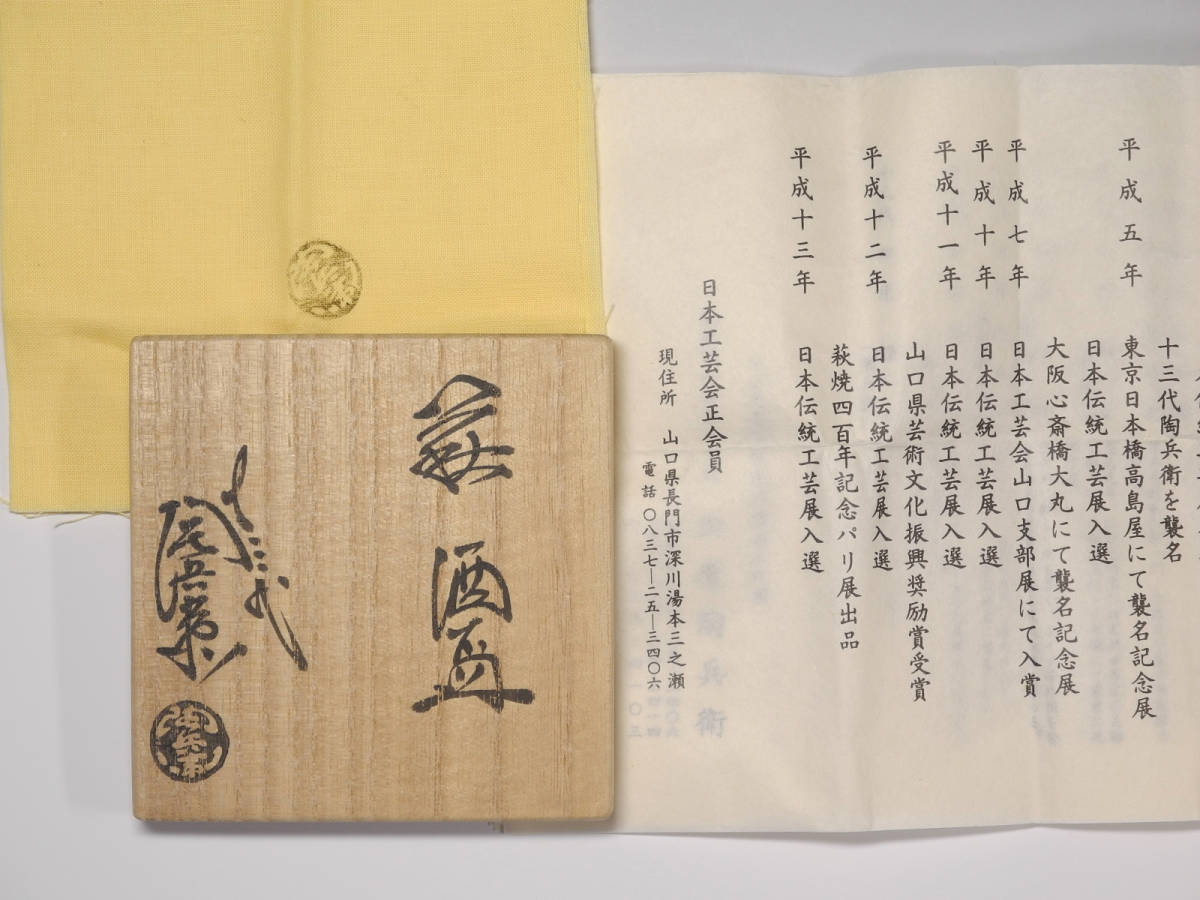 十三代陶兵衛を襲名
平成五年 東京日本橋高島屋にて襲名記念展
日本伝統工芸展入選
大阪心斎橋大丸にて襲名記念展
平成七年 日本工芸会山口支部展にて入賞
平成十年 日本伝統工芸展入選
平成十一年 日本伝統工芸展入選
山口県芸術文化振興奨励賞受賞
平成十二年 日本伝統工芸展入選
萩焼四百年記念パリ展出品
平成十三年 日本伝統工芸展入選
日本工芸会正会員
現住所 山口県長門市深川湯本三之瀬
電話 〇八三七―二五―三四〇六
萩 酒盃
十三代
陶兵衛
陶兵衛